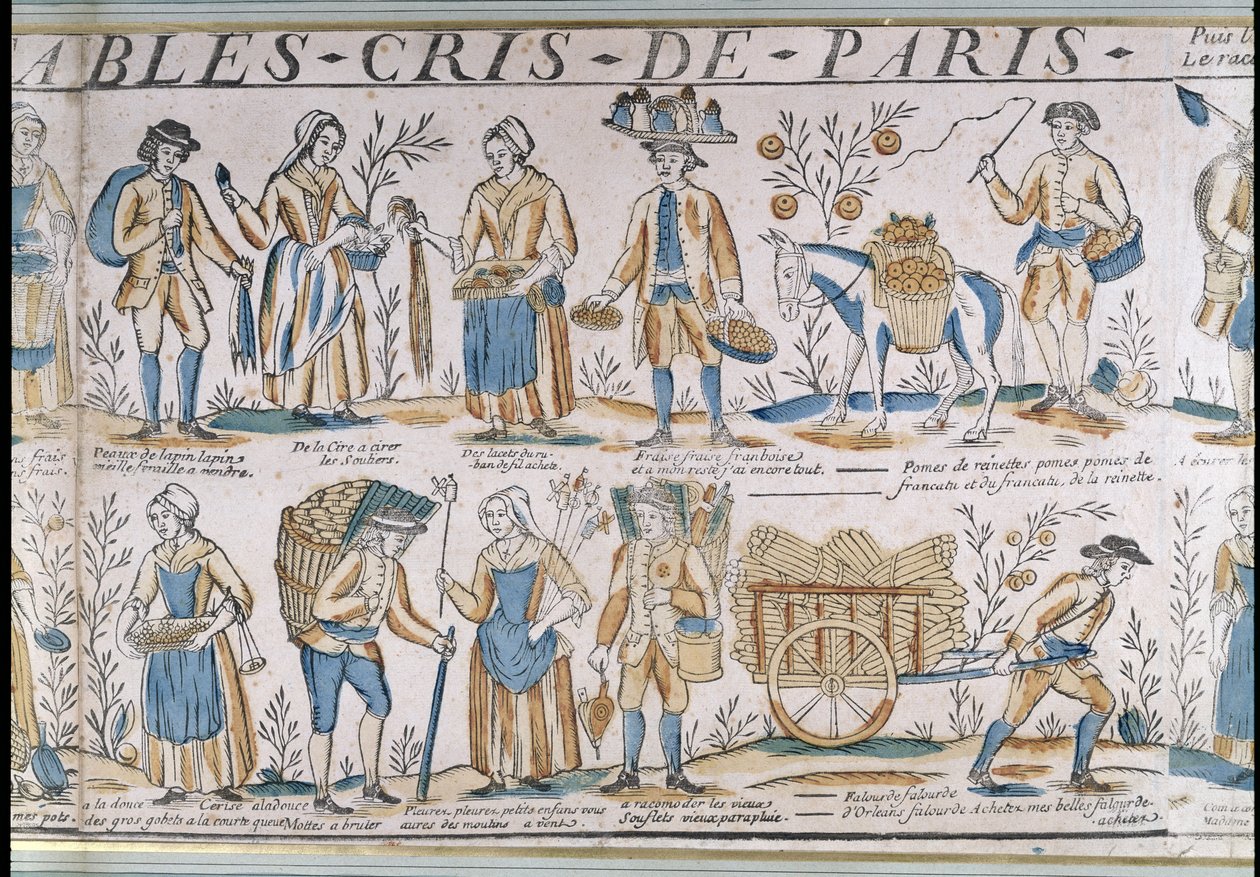 ABLES - CRIS - DE - PARIS -
Puis l'
Le rac
ns frais
ns frais.
Peaux de lapin lapin
vieille feraille a vendre.
De la Cire a cirer
les Souliers.
Des lacets du ru-
ban de fil achete.
Fraise fraise franboise
et a mon reste j'ai encore tout.
Pomes de reinettes pomes pomes de
francatu et du francatu, de la reinette.
A écurer les
mes pots.
a la douce Cerise a la douce
des gros gobets a la courte queue
Mottes a bruler
Pleurez pleurez petits enfans vous
aures des moulins a vent.
a racomoder les vieux
Souflets vieux parapluie.
Falourde falourde
d'Orleans falourde Achetez mes belles falourde.
achetez.
Madame